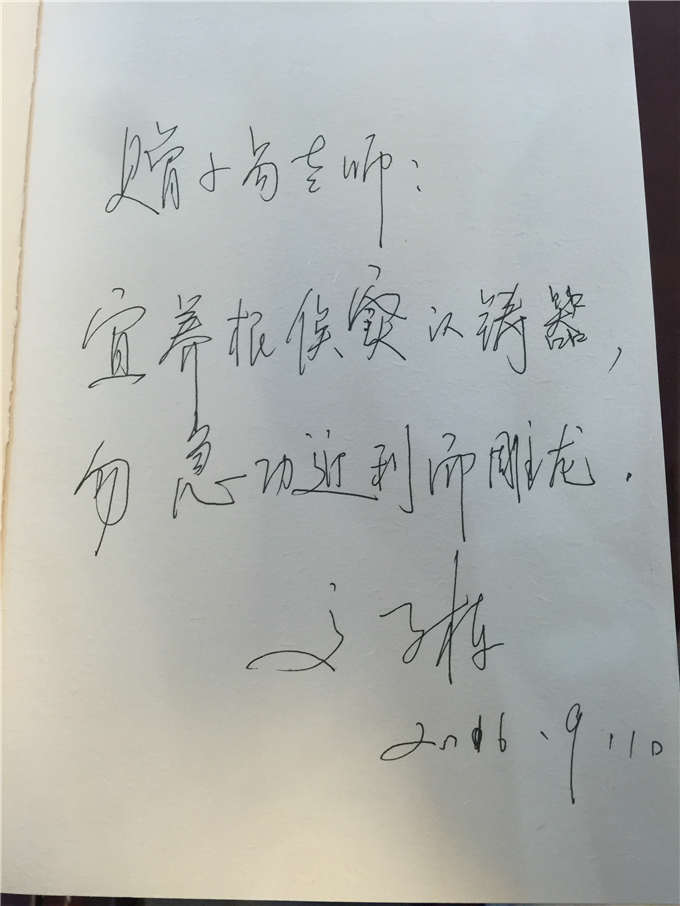 赠小老师：
宜养根俟實以铸器，
勿急功近利而雕龙.
文子栋
2016.9.10